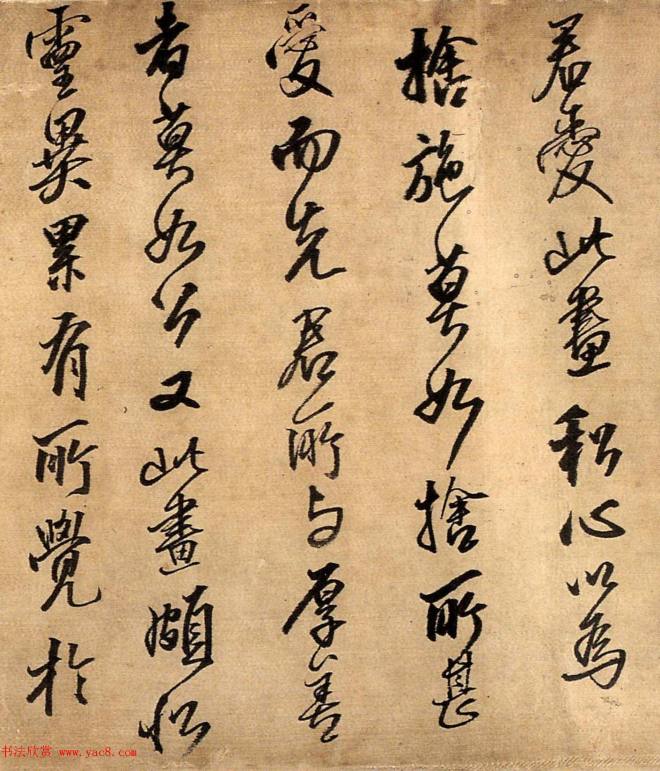 君愛此畫私心以為
捨施莫如捨所甚
愛而先君所与厚善
者莫如公又此畫頗
靈異累有所覺於
书法欣赏 www.yac8.com